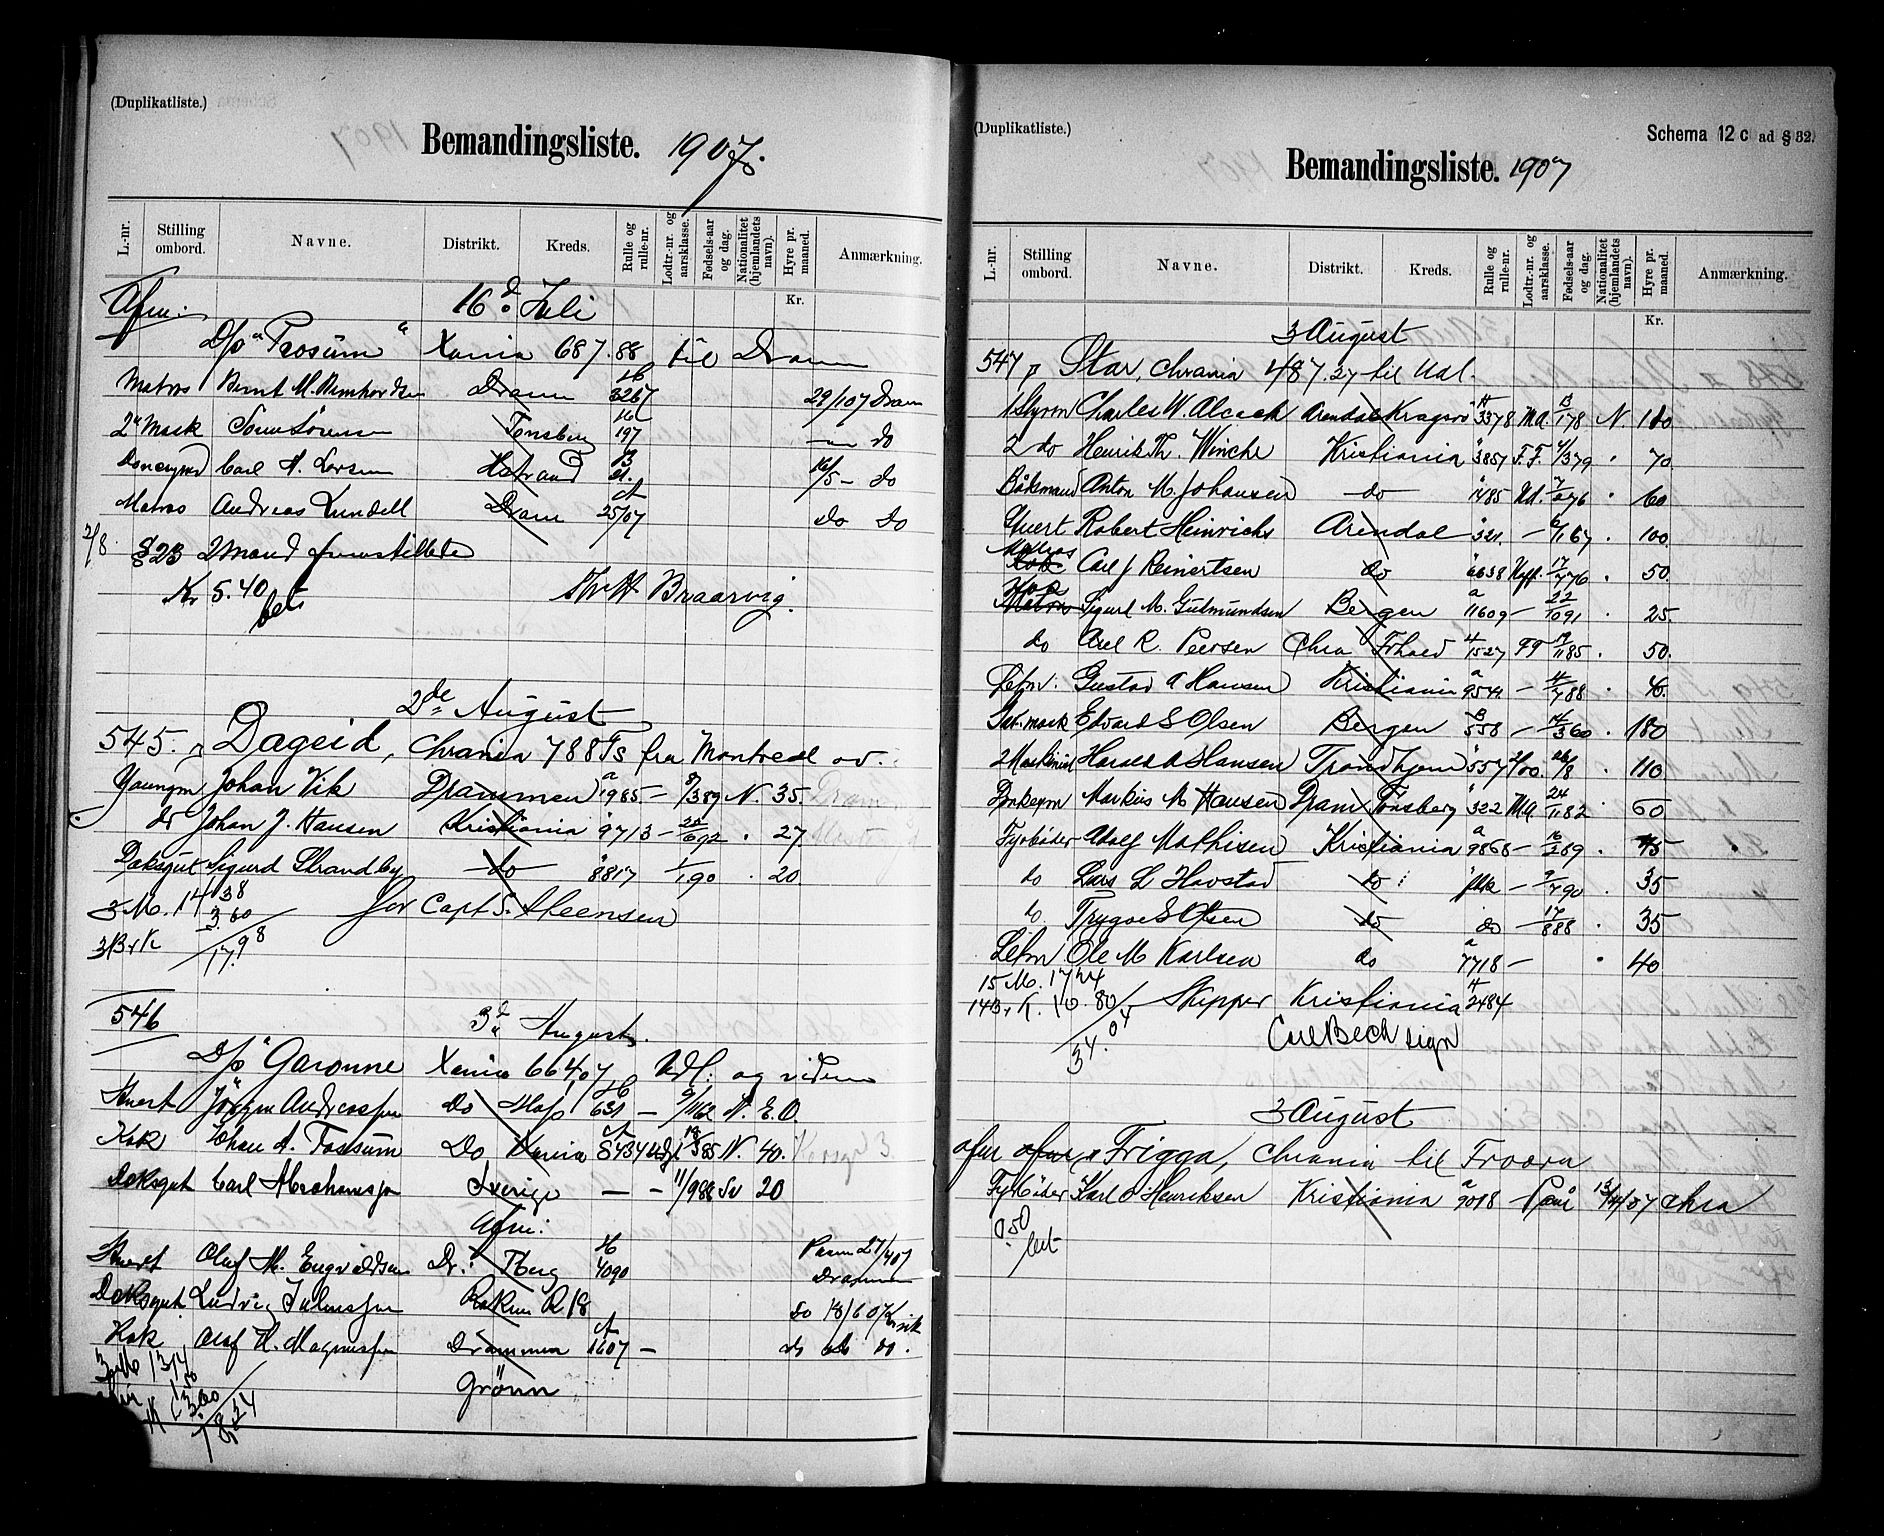 (Duplikatliste.)
Bemandingsliste. 1907.
L.-nr. Stilling ombord. Navne. Distrikt. Kreds. Rulle og rulle-nr. Lodtr.-nr. og aarsklasse. Fødsels-aar og dag. Nationalitet (hjemlandets navn). Hyre pr. maaned. Anmærkning.
Kr.
Afm: 16d Juli
D/s "Frosum" Xania 687.88 til Dram
Matros Bernt M. Dram 3267 29/107 Dram
2d Mask Søren Sørensen Tønsberg 197 do
Carl A. Larsen 21. 16/5 - do
Matros Andreas Lundell Dram 25/07 do do
2/8 § 23 2 mand fremstillede
Kr 5.40 Braarvig.
bet
2de August
545. Dageid, Chrania 788 Ts fra Montreal ov.
Youngm Johan Vik Drammen a 1985 - 8/389 N. 35.
do Johan J. Hansen Kristiania 9713 - 22/692 . 27
Dæksgut Sigurd Strandby do 8817 1/190 . 20
3 M. 14 38
3.60 for Capt S. Steensen
3 B & K 17.98
546 3d August.
D/s "Garonne Xania 664,07 Udl: og videre
Stuert Jörgen Andreassen do 631 - 9/1162 N. E.O.
Kok Johan A. Fossum Do Xania 8434 18/385 N. 40.
Dæksgut Carl Abrahamsen Sverige - - 11/988 Sv 20
Afm:
Stuert Oluf M. Engvaldsen Dr: Tberg 4090 27/407
Drammen
Dæksgut Ludvig R. 18 do 18/607
Kok Olaf H. Magnussen Drammen 1607 - do do do.
3 M 1314 Grönn
18.24
(Duplikatliste.) Schema 12 c ad § 32.
Bemandingsliste. 1907
L.-nr. Stilling ombord. Navne. Distrikt. Kreds. Rulle og rulle-nr. Lodtr.-nr. og aarsklasse. Fødsels-aar og dag. Nationalitet (hjemlandets navn). Hyre pr. maaned. Anmærkning.
Kr.
3 August
547 Star, Chrania 487.27 til Udl.
1 Styrm Charles W. Alcock Arendal Kragerø 3378 Md. 13/178 N. 100
2 do Henrik Th. Winche Kristiania 3857 F.F. 4/379 " 70.
Båtsmand Anton M. Johansen do 1485 7/276 " 60
Stuert Robert Heinrichs Arendal 321. - 6/167 . 100.
Matros Carl J Reinertsen do 6638 17/776 . 50.
Kok Sigurd M. Gudmundsen Bergen a 11609 - 22/1091 . 25.
do Axel R. Peersen Chra Frhald 1527 99 19/1185 . 50.
Letm. Gustav A Hansen Kristiania a 9541 - 11/788 . 40.
1st. mask Edvard S Olsen Bergen B 558 - 14/360 . 180
2 Maskinist Harald A Hansen Trondhjem 557 2/00. 26/8 . 110
Donkeym Markus M Hansen Dram Tønsberg 322 Md 24/1182 60
Fyrbøder Adolf Mathisen Kristiania a 9868 - 16/289 . 45
do Lars L Havstad do - 9/790 . 35
do. Trygve S Olsen do do - 17/888 . 35
Letm Ole M Karlsen do a 7718 - . 40
15 M. 17 24
14 B & K. 10.80 Skipper Kristiania 2484
34.04 Carl Bech sign
3 August
afm Frigga, Chrania til
Fyrbøder Karl O Henriksen Kristiania a 9018 - 13/4/07 Chra
0.50
bet